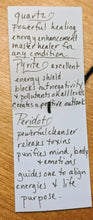 quartz
powerful healing
energy enhancement
master healer for
any condition.
Pyrite excellent
energy shield
blocks out negativity
& pollutants
creates a positive
Peridot
powerful cleanser
release toxins
purifies mind, body
& emotions
guides one to align
energies & life
purpose.